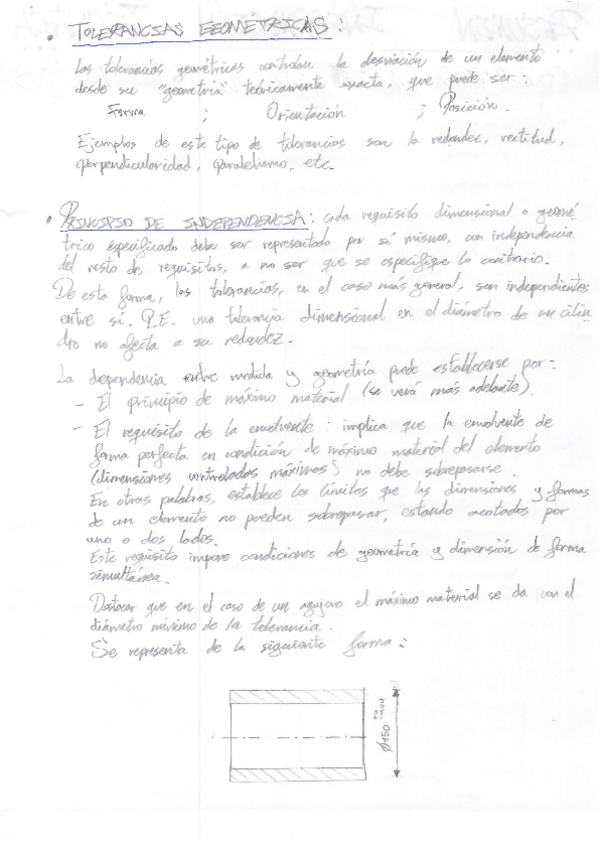 • TOLERANCIAS GEOMÉTRICAS :
Las tolerancias geométricas controlan la desviación de un elemento
desde su "geometría" teóricamente exacta, que puede ser :
Forma ; Orientación ; Posición.
Ejemplos de este tipo de tolerancias son la redondez, rectitud,
perpendicularidad, paralelismo, etc.
• PRINCIPIO DE INDEPENDENCIA : cada requisito dimensional o geomé
trico especificado debe ser respetado por sí mismo, con independencia
del resto de requisitos, a no ser que se especifique lo contrario.
De esta forma, las tolerancias, en el caso más general, son independientes
entre sí. P.E. una tolerancia dimensional en el diámetro de un cilin
dro no afecta a su redondez.
La dependencia entre medida y geometría puede establecerse por :
- El principio de máximo material (se verá más adelante).
- El requisito de la envolvente : implica que la envolvente de
forma perfecta en condición de máximo material del elemento
(dimensiones controladas máximas) no debe sobrepasarse.
En otras palabras, establece los límites que las dimensiones y formas
de un elemento no pueden sobrepasar, estando acotados por
uno o dos lados.
Este requisito impone condiciones de geometría y dimensión de forma
simultánea.
Destacar que en el caso de un agujero el máximo material se da con el
diámetro mínimo de la tolerancia.
Se representa de la siguiente forma :
ø150